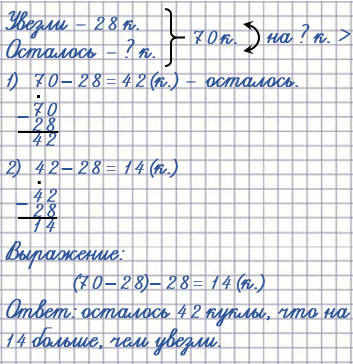 Увезли – 28 к.
Осталось – ? к.
70 к.
на ? к. >
1) 70 – 28 = 42 (к.) – осталось.
– 70
28
42
2) 42 – 28 = 14 (к.)
– 42
28
14
Выражение:
(70 – 28) – 28 = 14 (к.)
Ответ: осталось 42 куклы, что на
14 больше, чем увезли.